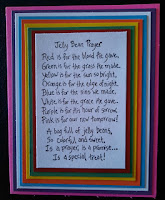 Jelly Bean Prayer
Red is for the blood He gave,
Green is for the grass He made,
Yellow is for the sun so bright,
Orange is for the edge of night.
Blue is for the sins we made,
White is for the grace He gave.
Purple is for His hour of sorrow
Pink is for our new tomorrow!
A bag full of jelly beans,
So colorful, and sweet,
Is a prayer, is a promise...
Is a special treat!